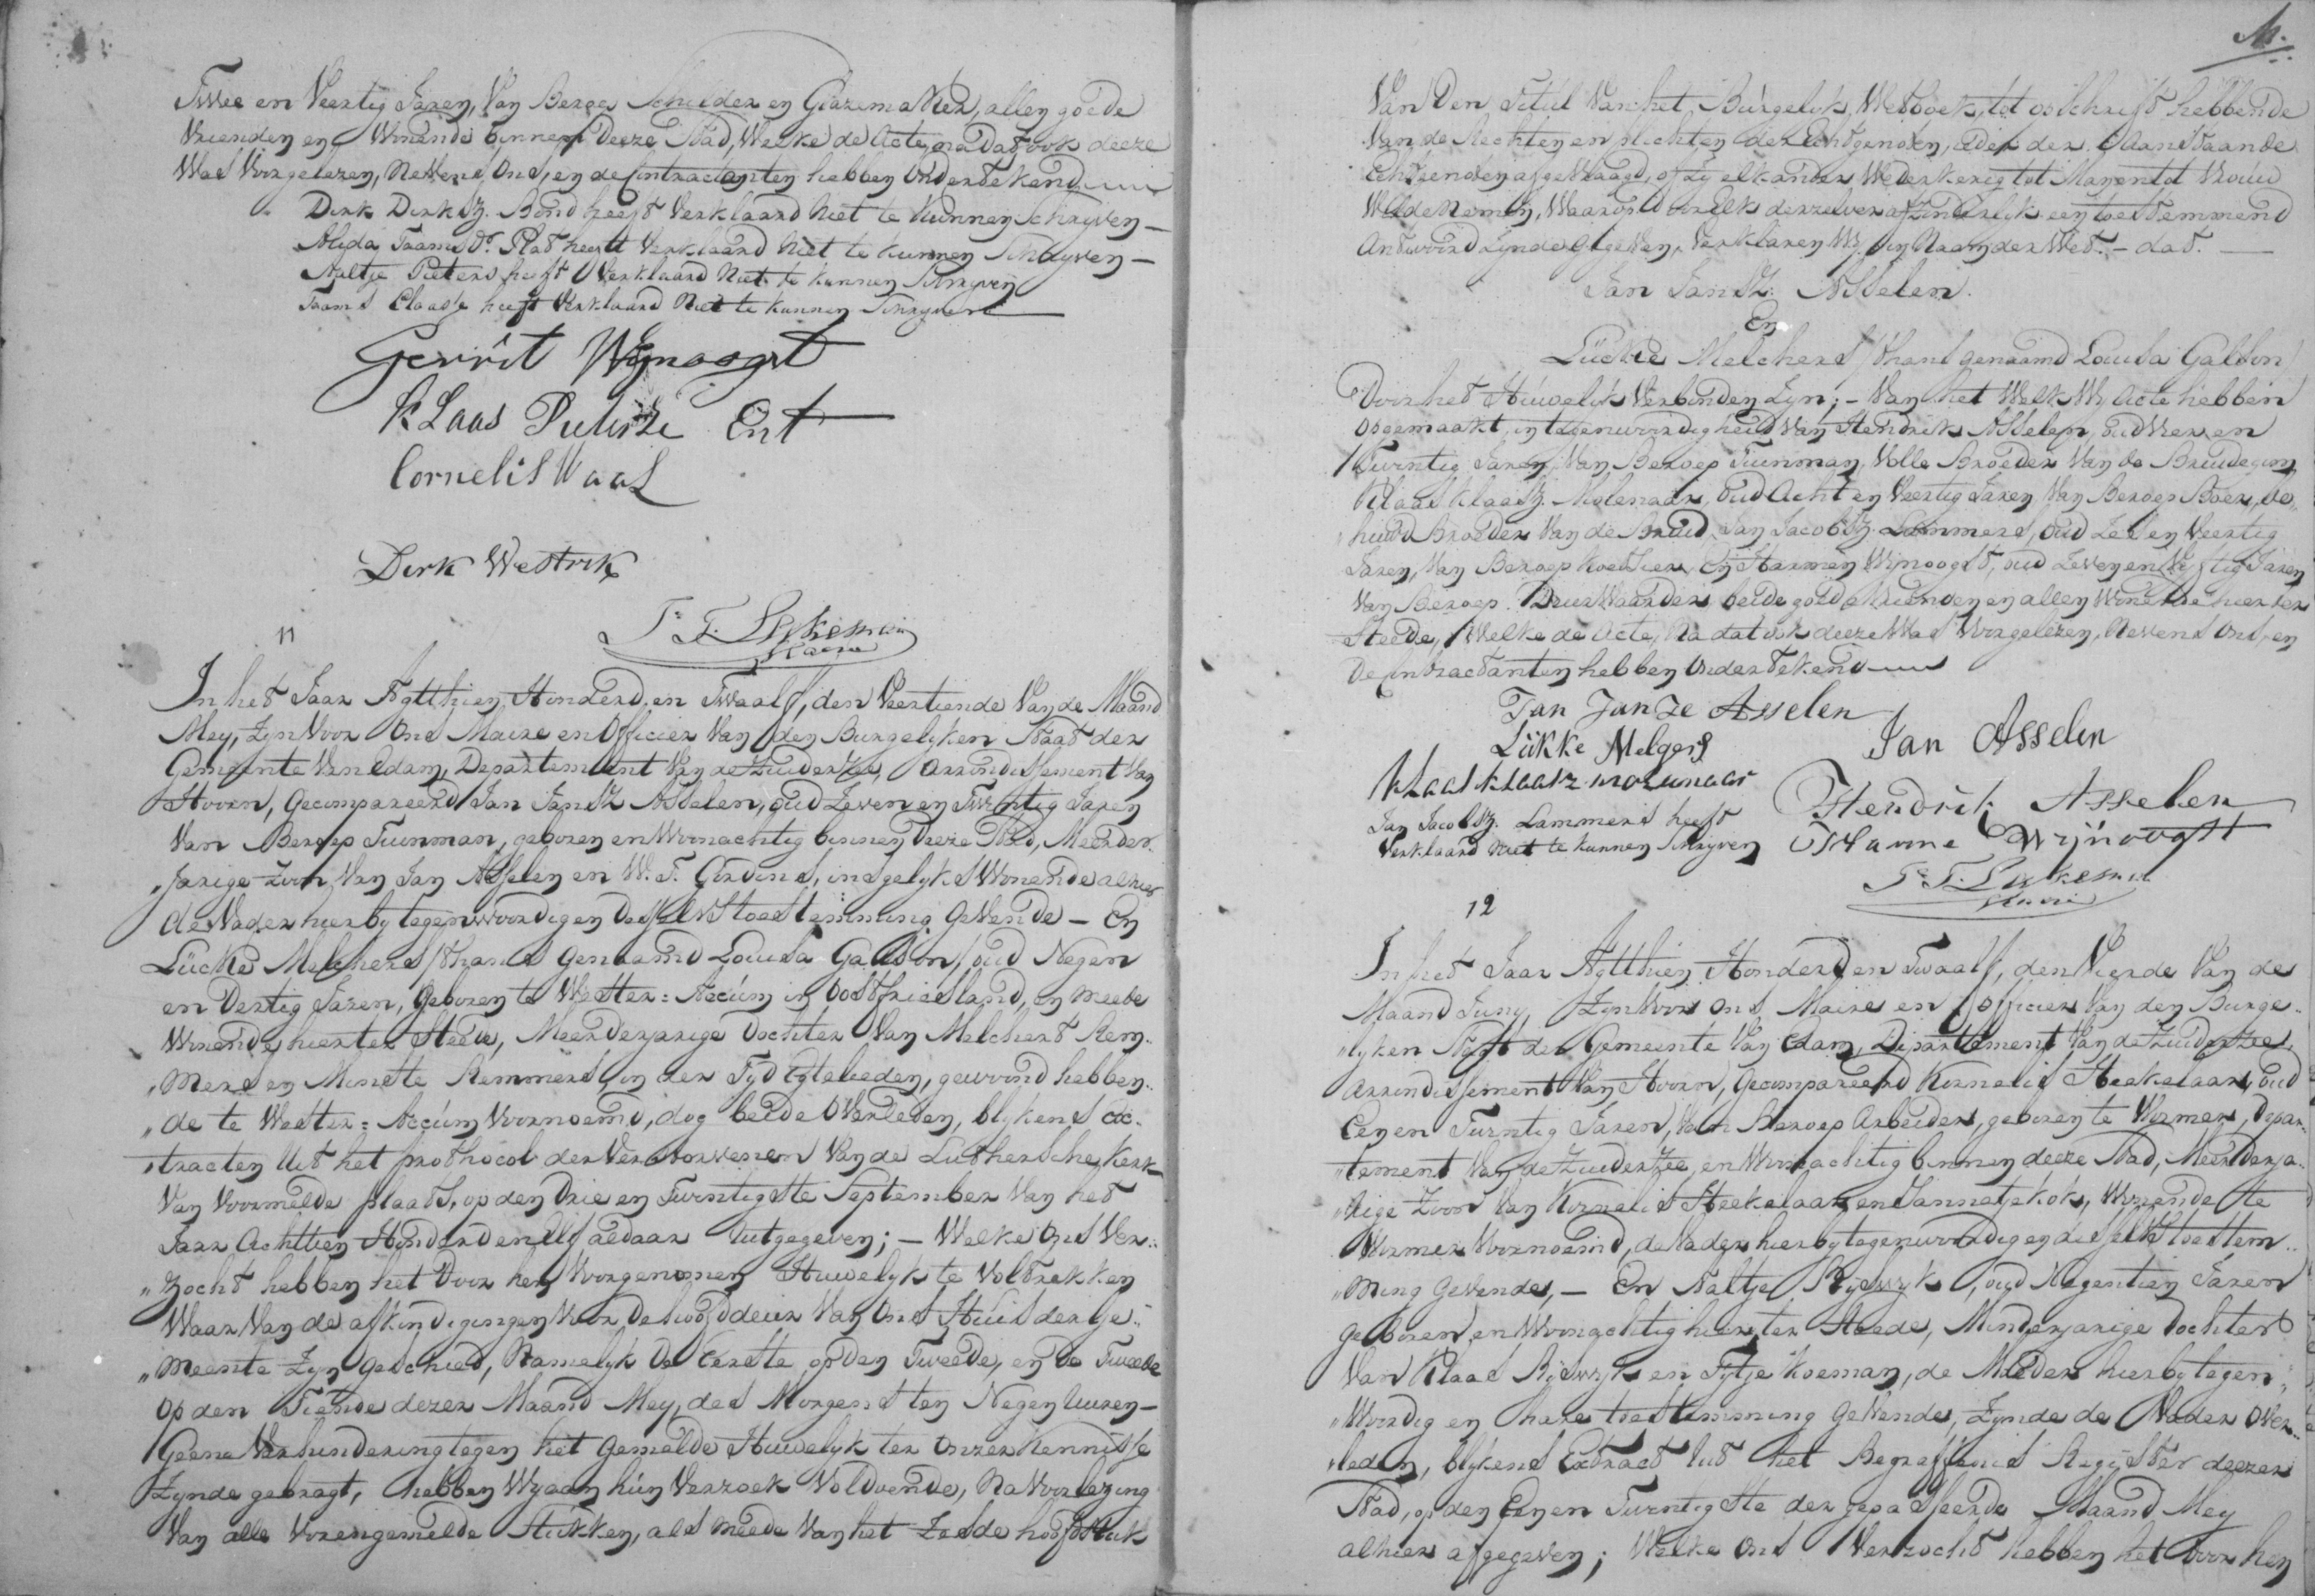 Twee en Veertig Jaren, Van Beroep Schilder en Glazemaker, allen goede
Vrienden en Wonende binnen Deeze Stad, Welke de Acte, na Dat ook deeze
Was Voorgelezen, Nevens Ons, en de Contractanten hebben Ondertekend
Dirk Dirksz. Bond heeft Verklaard Niet te Kunnen Schryven —
Alida Taams Dr. Plat heeft Verklaard Niet te kunnen Schryven —
Aaltje Pieters heeft Verklaard Niet te kunnen Schryven
Taams Claasse heeft Verklaard Niet te kunnen Schryven
Gerrit Wynoogst
Klaas Ent
Cornelis Waal
Dirk Westrik
11
In het Jaar Agtthien Honderd en Twaalf, den Veertiende Van de Maand
Mey, Zyn Voor Ons Maire en Officier Van den Burgelyken Staat der
Gemeente Van Edam, Departement Van de Zuiderzee, Arrondissement Van
Hoorn, Gecompareerd Jan Jansz Asselen, oud Zeven en Twintig Jaren
Van Beroep Tuinman, geboren en Woonachtig binnen Deeze Stad, Meerder
„jarige Zoon Van Jan Asselen en W. F. Cirdens, insgelyks Wonende alhier
de Vader hier by tegenwoordig en deszelvs toestemming Gevende — En
Lücke Melchers /thans genaamd Louisa Galdon/ oud Negen
en Dertig Jaren, Geboren te Wester=Accúm in Oostfriesland, en meede
Wonende hier ter Steede, Meerderjarige Dochter Van Melchert Rem„
„mers en Minste Remmers, in der Tyd Egtelieden, gewoond hebben„
„de te Wester=Accúm Voornoemd, dog beide Overleden, blykens Ex„
„tracten Uit het prothocol der Verstorvenen Van de Luthersche Kerk
Van Voormelde plaats, op den Drie en Twintigste September Van het
Jaar Achttien Honderd en Elf aldaar Uitgegeven; — Welke Ons Ver„
„zocht hebben het Door hen Voorgenomen Huwelyk te Voltrekken
Waar Van de afkondigingen Voor de hoofddeur Van Ons Huis der Ge„
„meente Zyn Geschied, Namelyk De Eerste op den Tweede, en de Tweede
Op den Tiende dezer Maand Mey, des Morgens ten Negen Uuren —
Geene Verhindering tegen het Gemelde Huwelyk ter Onzer Kennisse
Zynde gebragt, hebben Wy aan hún Verzoek Voldoende, Na Voorlezing
Van alle Vorengemelde Stukken, als meede Van het Zesde hoofdstuk
11.
Van Den Titul Van het Burgelyk Wetboek, tot opschrift hebbende
Van de Rechten en plichten der Echtgenoten, ieder der Aanstaande
Echtgenoten afgevraagd, of zy elkander Wederkerig tot Man en tot Vrouw
Wilde Nemen, Waarop door Elk derzelver afzonderlyk een toestemmend
Antwoord Zynde Gegeven, Verklaren Wy in Naam der Wet. — dat. —
Jan Jansz. Asselen.
En
Lücke Melchers /thans genaamd Louisa Galdon/
Door het Huwelyk Verbonden Zyn; — Van het Welk Wy Acte hebben
opgemaakt, in tegenwoordigheid Van Hendrik Asselen, oud Vier en
Twintig Jaren, Van Beroep Tuinman, Volle Broeder Van de Bruidegom,
Klaas Klaasz. Molenaar, Oud Acht en Veertig Jaren, Van Beroep Boer, be„
„huwd Broeder Van de Bruid, Jan Jacobsz. Lammers, oud Zes en Veertig
Jaren, Van Beroep Koetsier, En Harmen Wynoogst, oud Zeven en Vyftig Jaren
Van Beroep Deurwaarder, beide goede Vrienden en allen Wonende hier ter
Steede, Welke de Acte, Na dat ook deeze Was Voorgelezen, Nevens Ons, en
De Contractanten hebben Ondertekend
Jan Janze Asselen
Lükke Melgers
Jan Asselen
Klaas klaasz molenaar
Hendrik Asselen
Jan Jacobsz. Lammers heeft
Verklaard Niet te kunnen Schryven
Harme Wynoogst
12
In het Jaar Agtthien Honderd en Twaalf, den Vierde Van de
Maand Juny, Zyn Voor Ons Maire en Officier Van den Burge„
„lyken Staat der Gemeente Van Edam, Departement Van de Zuiderzee,
Arrondissement Van Hoorn, Gecompareerd Kornelis Heekelaar, oud
Een en Twintig Jaren, Van Beroep Arbeider, geboren te Wormer, Depar„
„tement Van de Zuiderzee, en Woonachtig binnen deeze Stad, Meerderja„
„rige Zoon Van Kornelis Heekelaar en Jannetje Kok, Wonende te
Wormer Voornoemd, de Vader hier by tegenwoordig en deszelvs toestem„
„ming Gevende, — En Aaltje Ryswyk, oud Negentien Jaren
geboren en Woonachtig hier ter Steede, Minderjarige Dochter
Van Klaas Ryswyk en Tytje Koeman, de Moeder hier by tegen„
„woordig en hare toestemming Gevende, Zynde de Vader Over„
„leden, blykens Extract Uit het Begraffenis Register deezer
Stad, op den Een en Twintigste der gepasseerde Maand Mey
alhier afgegeven; Welke Ons Verzocht hebben het door hen